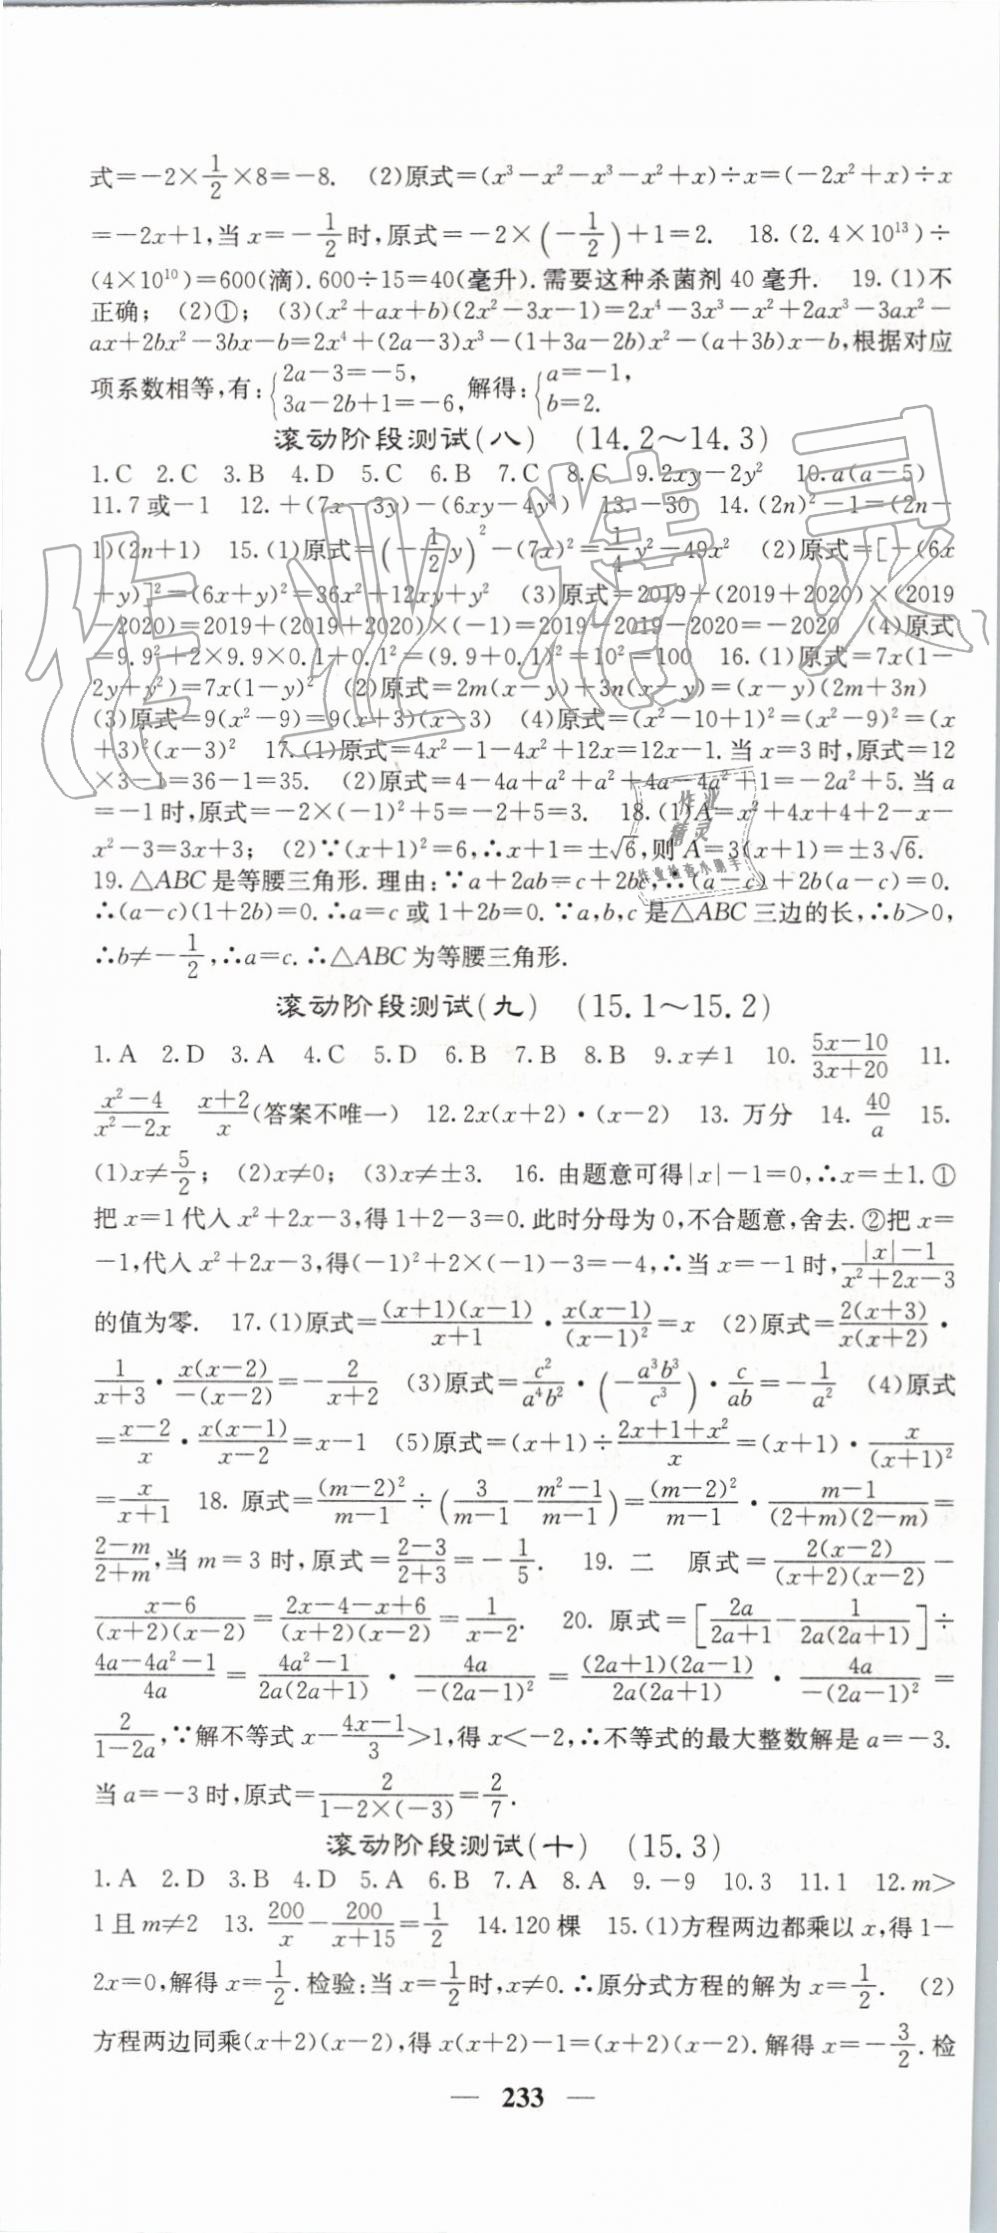 式=-2×1/2×8=-8. (2)原式=(x³-x²-x³-x²+x)÷x=(-2x²+x)÷x
=-2x+1,当x=-1/2时,原式=-2×(-1/2)+1=2. 18.(2.4×10¹³)÷
(4×10¹⁰)=600(滴).600÷15=40(毫升).需要这种杀菌剂40毫升. 19.(1)不
正确; (2)①; (3)(x²+ax+b)(2x²-3x-1)=2x⁴-3x³-x²+2ax³-3ax²-
ax+2bx²-3bx-b=2x⁴+(2a-3)x³-(1+3a-2b)x²-(a+3b)x-b,根据对应
项系数相等,有:{2a-3=-5, 3a-2b+1=-6,解得:{a=-1, b=2.
滚动阶段测试(八) (14.2~14.3)
1.C 2.C 3.B 4.D 5.C 6.B 7.C 8.C 9.2xy-2y² 10.a(a-5)
11.7或-1 12.+(7x-3y)-(6xy-4y²) 13.-30 14.(2n)²-1=(2n-
1)(2n+1) 15.(1)原式=(-1/2y)²-(7x)²=1/4y²-49x² (2)原式=[-(6x
+y)]²=(6x+y)²=36x²+12xy+y² (3)原式=2019+(2019+2020)×(2019
-2020)=2019+(2019+2020)×(-1)=2019-2019-2020=-2020 (4)原式
=9.9²+2×9.9×0.1+0.1²=(9.9+0.1)²=10²=100 16.(1)原式=7x(1-
2y+y²)=7x(1-y)² (2)原式=2m(x-y)+3n(x-y)=(x-y)(2m+3n)
(3)原式=9(x²-9)=9(x+3)(x-3) (4)原式=(x²-10+1)²=(x²-9)²=(x
+3)²(x-3)² 17.(1)原式=4x²-1-4x²+12x=12x-1.当x=3时,原式=12
×3-1=36-1=35. (2)原式=4-4a+a²+a²+4a-4a²+1=-2a²+5.当a
=-1时,原式=-2×(-1)²+5=-2+5=3. 18.(1)A=x²+4x+4+2-x-
x²-3=3x+3; (2)∵(x+1)²=6,∴x+1=±√6,则A=3(x+1)=±3√6.
19.△ABC是等腰三角形.理由:∵a+2ab=c+2bc,∴(a-c)+2b(a-c)=0.
∴(a-c)(1+2b)=0.∴a=c或1+2b=0.∵a,b,c是△ABC三边的长,∴b>0,
∴b≠-1/2,∴a=c.∴△ABC为等腰三角形.
滚动阶段测试(九) (15.1~15.2)
1.A 2.D 3.A 4.C 5.D 6.B 7.B 8.B 9.x≠1 10. (5x-10)/(3x+20) 11.
(x²-4)/(x²-2x) (x+2)/x(答案不唯一) 12.2x(x+2)·(x-2) 13.万分 14. 40/a 15.
(1)x≠5/2; (2)x≠0; (3)x≠±3. 16.由题意可得|x|-1=0,∴x=±1.①
把x=1代入x²+2x-3,得1+2-3=0.此时分母为0,不合题意,舍去.②把x=
-1,代入x²+2x-3,得(-1)²+2×(-1)-3=-4,∴当x=-1时,(|x|-1)/(x²+2x-3)
的值为零. 17.(1)原式=(x+1)(x-1)/(x+1)·x(x-1)/(x-1)²=x (2)原式=2(x+3)/x(x+2)·
1/(x+3)·x(x-2)/-(x-2)=-2/(x+2) (3)原式=c²/a⁴b²·(-a³b³/c³)·c/ab=-1/a² (4)原式
=(x-2)/x·x(x-1)/(x-2)=x-1 (5)原式=(x+1)÷(2x+1+x²)/x=(x+1)·x/(x+1)²
=x/(x+1) 18.原式=(m-2)²/(m-1)÷(3/(m-1)-(m²-1)/(m-1))=(m-2)²/(m-1)·(m-1)/(2+m)(2-m)=
(2-m)/(2+m),当m=3时,原式=(2-3)/(2+3)=-1/5. 19.二 原式=2(x-2)/(x+2)(x-2)-
(x-6)/(x+2)(x-2)=(2x-4-x+6)/(x+2)(x-2)=1/(x-2). 20.原式=[2a/(2a+1)-1/2a(2a+1)]÷
(4a-4a²-1)/4a=(4a²-1)/2a(2a+1)·4a/-(2a-1)²=(2a+1)(2a-1)/2a(2a+1)·4a/-(2a-1)²=
2/(1-2a),∵解不等式x-(4x-1)/3>1,得x<-2,∴不等式的最大整数解是a=-3.
当a=-3时,原式=2/(1-2×(-3))=2/7.
滚动阶段测试(十) (15.3)
1.A 2.D 3.B 4.D 5.A 6.B 7.A 8.A 9.-9 10.3 11.1 12.m>
1且m≠2 13. 200/x-200/(x+15)=1/2 14.120棵 15.(1)方程两边都乘以x,得1-
2x=0,解得x=1/2.检验:当x=1/2时,x≠0.∴原分式方程的解为x=1/2. (2)
方程两边同乘(x+2)(x-2),得x(x+2)-1=(x+2)(x-2).解得x=-3/2.检
— 233 —
作业精灵
作业精灵
作业检查小助手